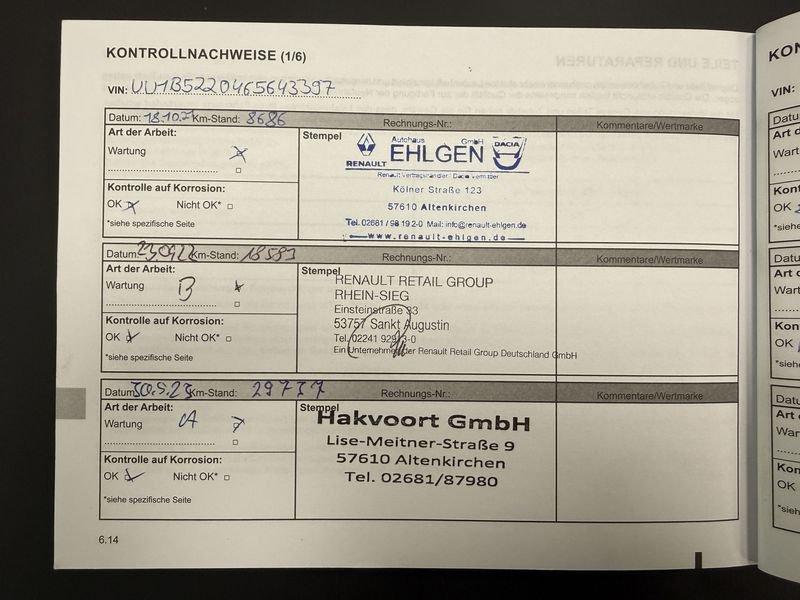 KONTROLLNACHWEISE (1/6)
VIN: UU1B5220465643397
Datum: 18.10.21 Km-Stand: 8686 Rechnungs-Nr.: Kommentare/Wertmarke
Art der Arbeit:
Wartung
Kontrolle auf Korrosion:
OK Nicht OK*
*siehe spezifische Seite
Stempel
Autohaus GmbH
RENAULT EHLGEN DACIA
Renault Vertragshändler / Dacia Vermittler
Kölner Straße 123
57610 Altenkirchen
Tel. 02681 / 98 19 2-0 Mail: info@renault-ehlgen.de
www.renault-ehlgen.de
Datum: Km-Stand: 18583 Rechnungs-Nr.: Kommentare/Wertmarke
Art der Arbeit:
Wartung B
Kontrolle auf Korrosion:
OK Nicht OK*
*siehe spezifische Seite
Stempel
RENAULT RETAIL GROUP
RHEIN-SIEG
Einsteinstraße 33
53757 Sankt Augustin
Tel. 02241 92913-0
Ein Unternehmen der Renault Retail Group Deutschland GmbH
Datum: 30.5.23 Km-Stand: 29737 Rechnungs-Nr.: Kommentare/Wertmarke
Art der Arbeit:
Wartung A
Kontrolle auf Korrosion:
OK Nicht OK*
*siehe spezifische Seite
Stempel
Hakvoort GmbH
Lise-Meitner-Straße 9
57610 Altenkirchen
Tel. 02681/87980
6.14